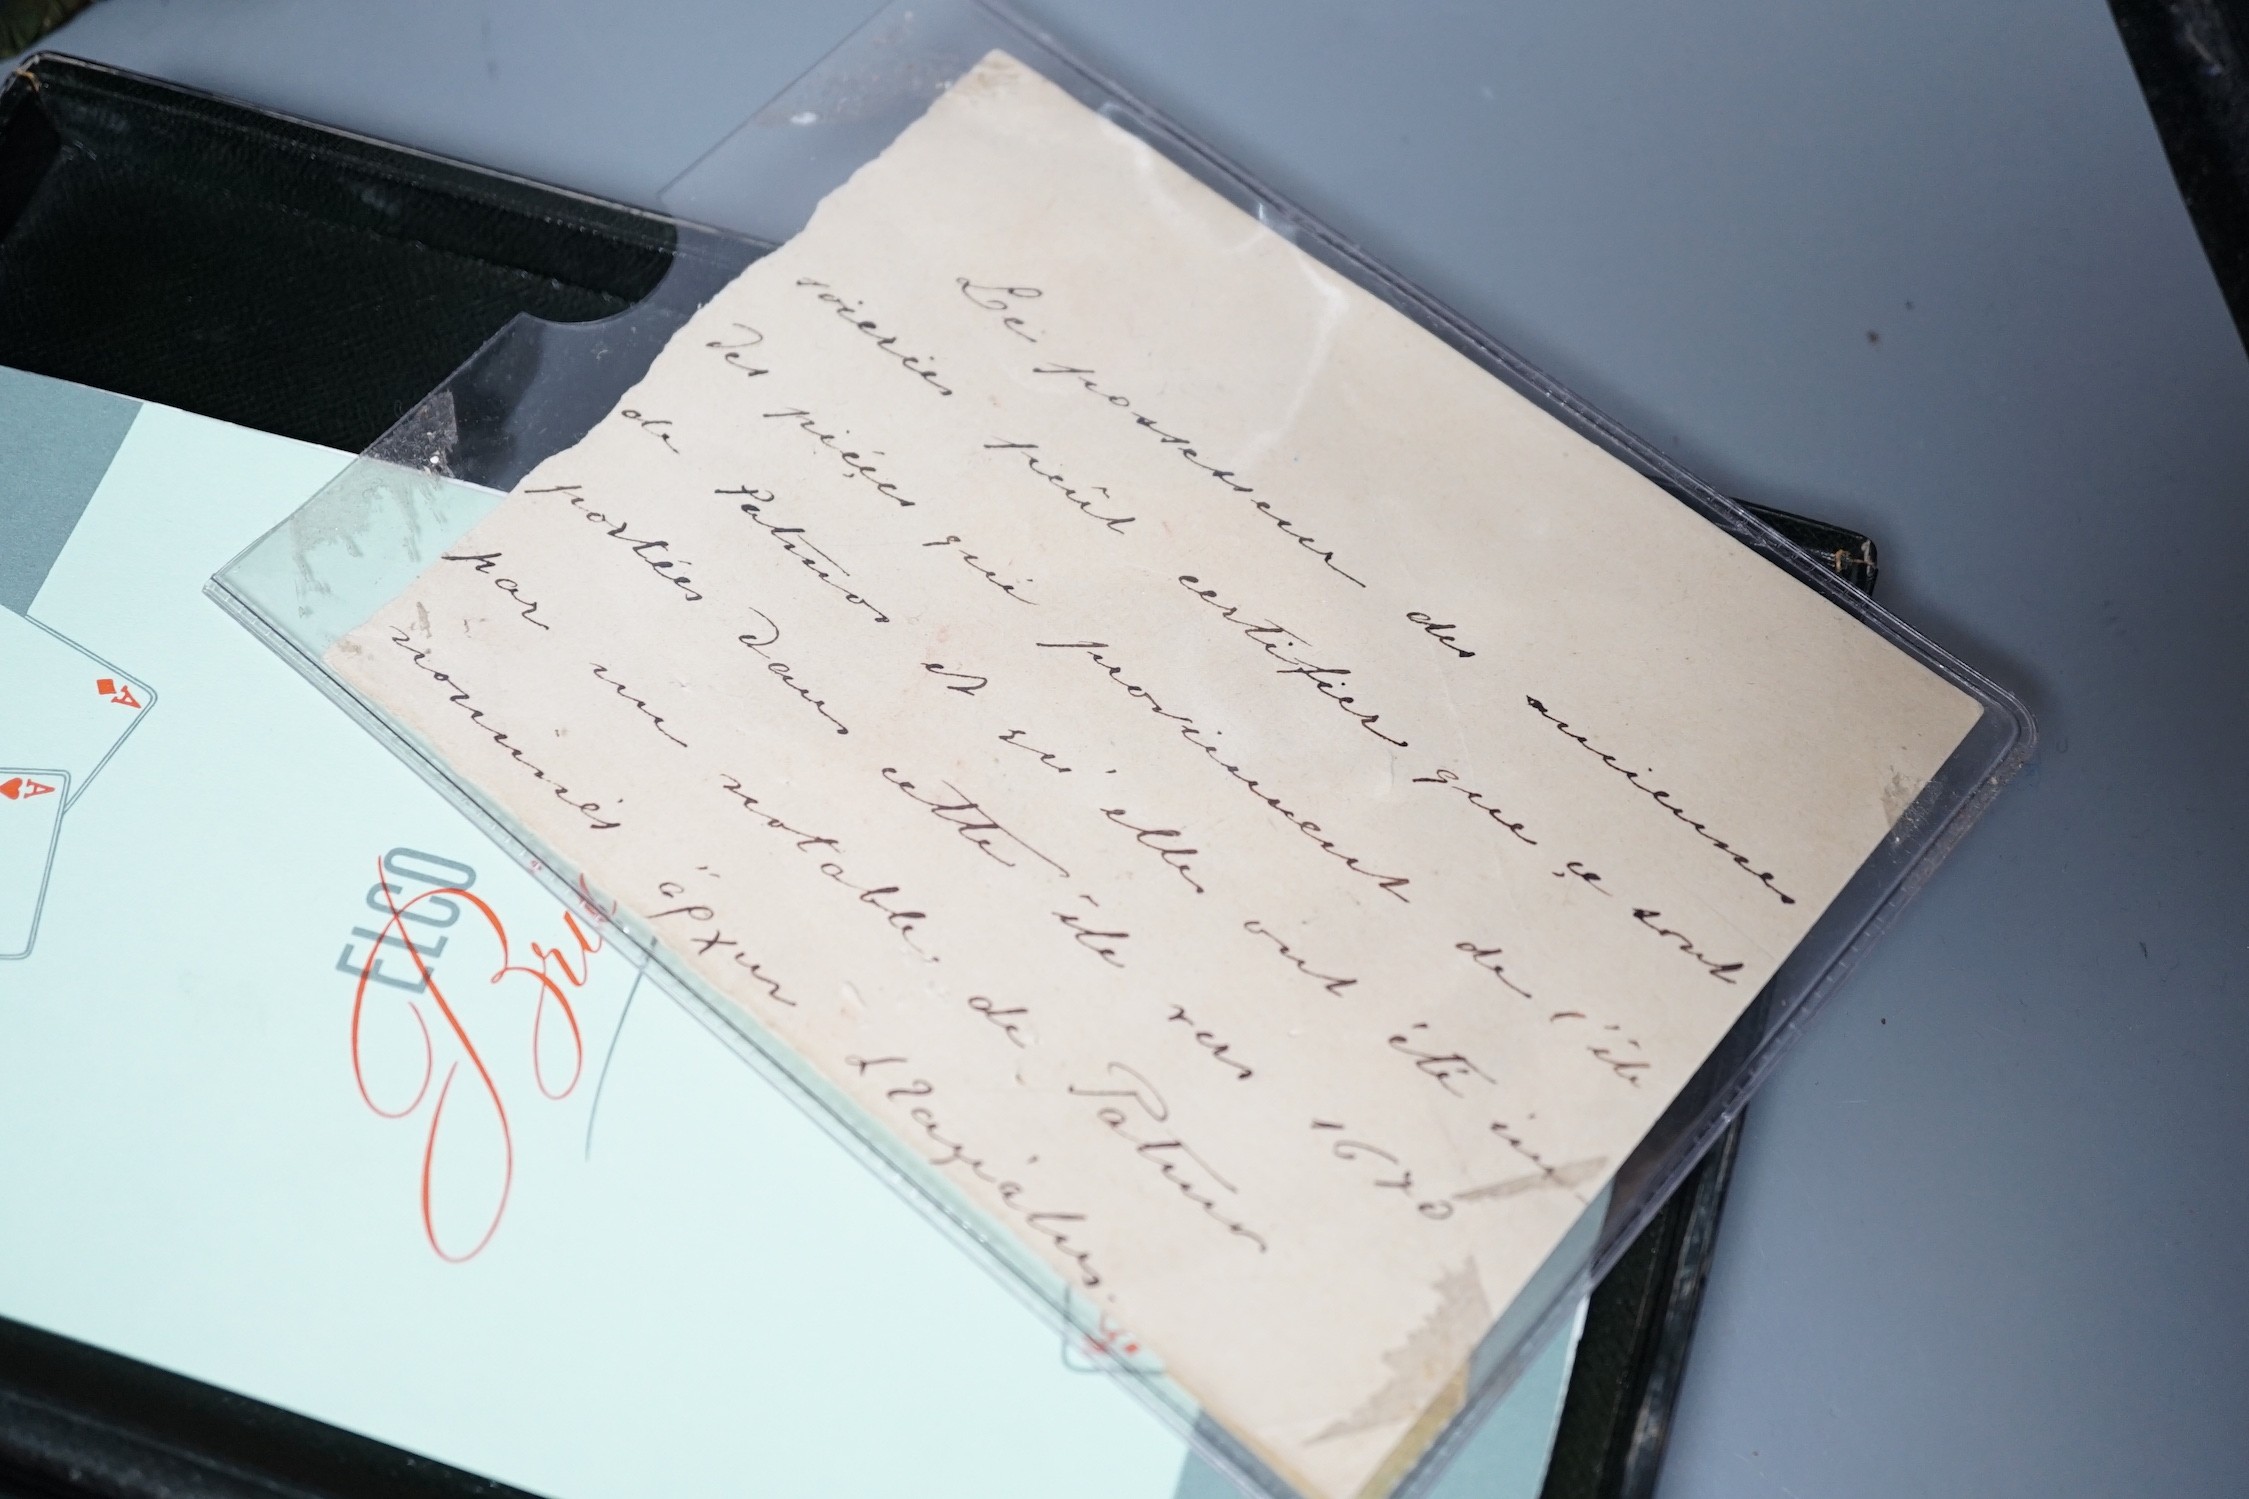 Le possesseur des anciennes
soieries peût certifier que çe sont
des pièçes qui proviennent de l'île
de Patmos et qu'elles ont été im
portées dans cette île vers 1670
par un notable, de Patmos
nommés
ELCO
A
A